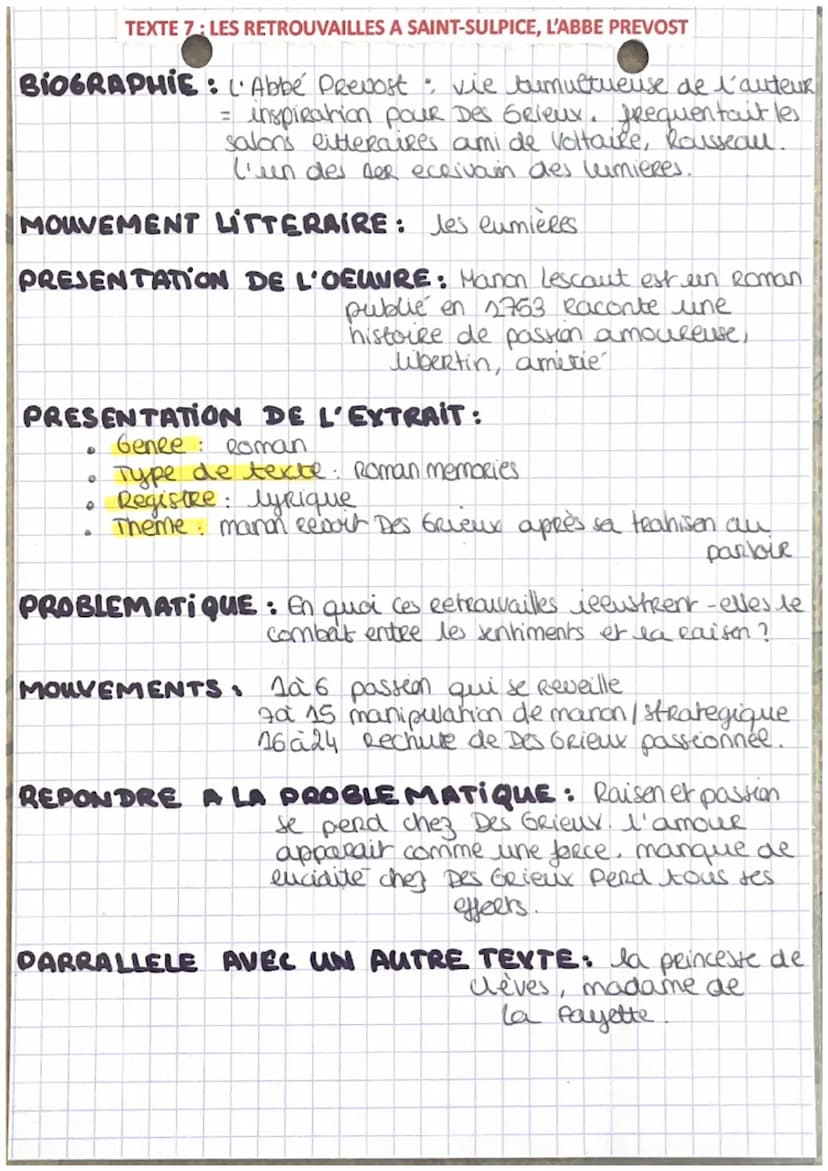 TEXTE 7 : LES RETROUVAILLES A SAINT-SULPICE, L'ABBE PREVOST
BIOGRAPHIE : L'Abbé Prevost : vie tumultueuse de l'auteur
= inspiration pour Des Grieux. frequentait les
salons litteraires ami de Voltaire, Rousseau.
L'un des 1er ecrivain des lumieres.
MOUVEMENT LITTERAIRE : les lumières
PRESENTATION DE L'OEUVRE : Manon Lescaut est un roman
publié en 1753 raconte une
histoire de passion amoureuse,
libertin, amitié
PRESENTATION DE L'EXTRAIT :
• Genre : roman
• Type de texte : Roman memories
• Registre : lyrique
• Thème : manon revoit Des Grieux après sa trahison au
parloir
PROBLEMATIQUE : En quoi ces retrouvailles illustrent-elles le
combat entre les sentiments et la raison ?
MOUVEMENTS : 1à6 passion qui se reveille
7à 15 manipulation de manon / strategique
16à24 Rechute de Des Grieux passionnée.
REPONDRE A LA PROBLEMATIQUE : Raison et passion
se perd chez Des Grieux. l'amour
apparait comme une force, manque de
lucidité chez Des Grieux Perd tous ses
effets.
PARRALLELE AVEC UN AUTRE TEXTE : la princesse de
clèves, madame de
La Fayette.